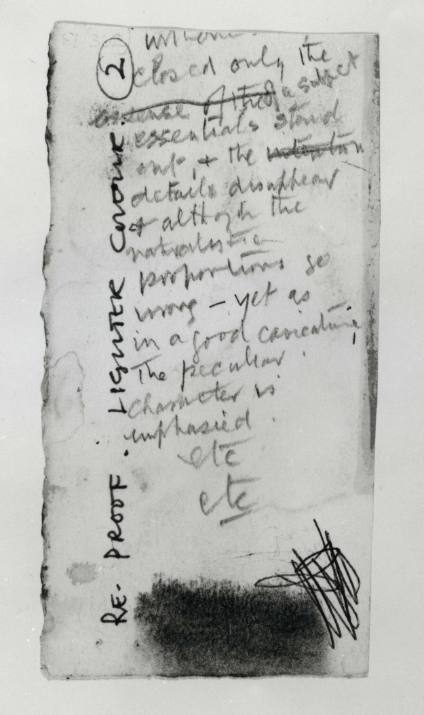 2
closed only the
essence of the of a subject
essentials stand
out, & the intention
details disappear
& although the
naturalistic
proportions go
wrong – yet as
in a good caricature,
The peculiar
character is
emphasied.
etc
etc
RE- PROOF. LIGHTER COLOUR.